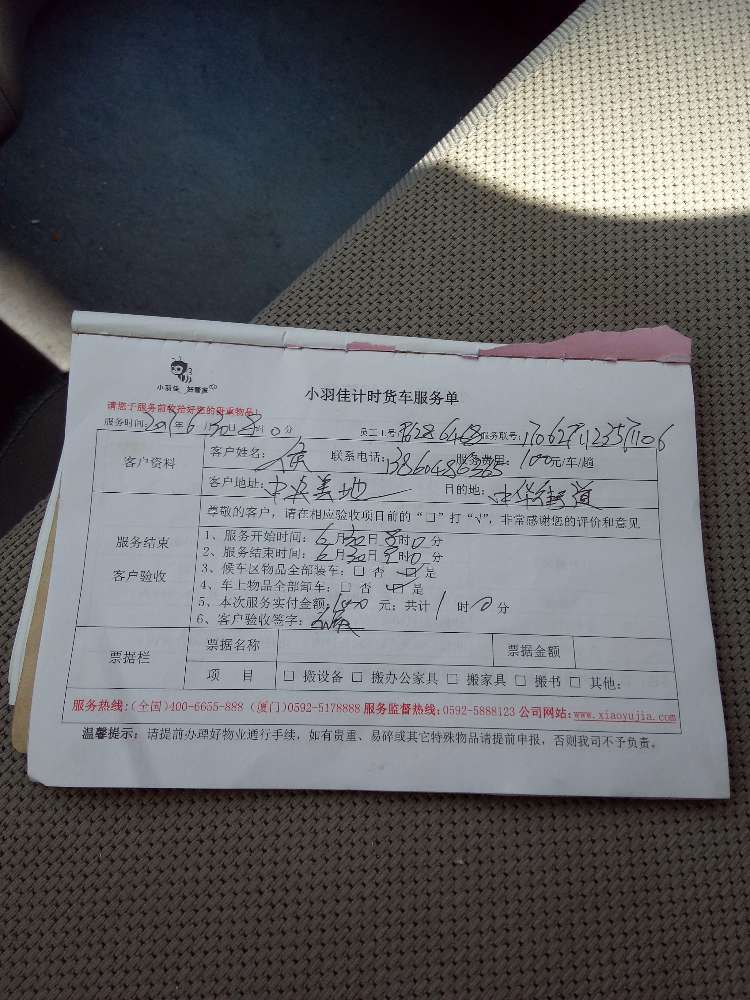 小羽佳 好管家
小羽佳计时货车服务单
请您于服务前收拾好您的贵重物品!
服务时间:2017年6月30日8时0分 员工工号: 服务联号:
客户资料 客户姓名: 联系电话: 服务费用:100元/车/趟
客户地址:中央美地 目的地:中华街道
尊敬的客户,请在相应验收项目前的“□”打“√”,非常感谢您的评价和意见
服务结束
客户验收
1、服务开始时间:6月30日8时0分
2、服务结束时间:6月30日9时0分
3、候车区物品全部装车:□ 否 □ 是
4、车上物品全部卸车:□ 否 □ 是
5、本次服务实付金额:100元;共计1时0分
6、客户验收签字:
票据栏 票据名称 票据金额
项 目 □ 搬设备 □ 搬办公家具 □ 搬家具 □ 搬书 □ 其他:
服务热线:(全国)400-6655-888 (厦门)0592-5178888 服务监督热线:0592-5888123 公司网站:www.xiaoyujia.com
温馨提示:请提前办理好物业通行手续,如有贵重、易碎或其它特殊物品请提前申报,否则我司不予负责。